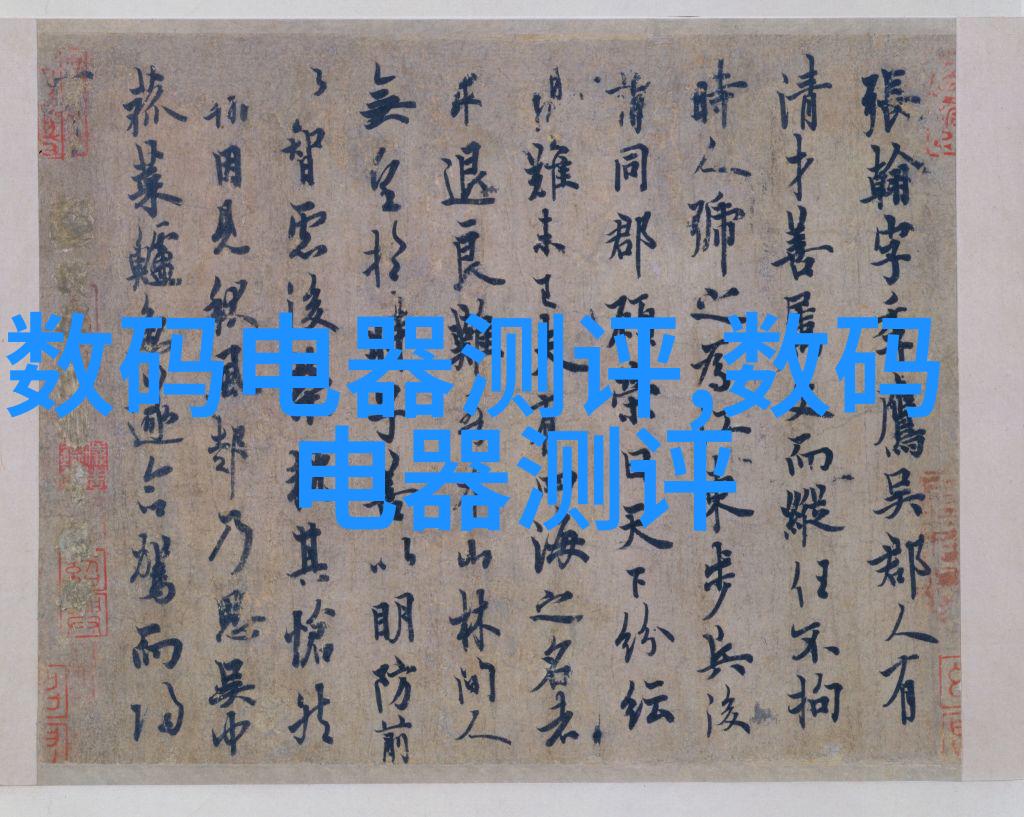 数码电器测评,数码
电器测评
張翰字季鷹吳郡人有
清才善属文而縱任不拘
時人號之為江東步兵後
謂同郡顧榮曰天下紛紜
難未已夫有四海之名者
求退良難吾本山林間人
無望於時子善以明防前
以智慮後榮執其愴然
翰因見秋風起乃思吳中
菰菜鱸魚遂命駕而歸